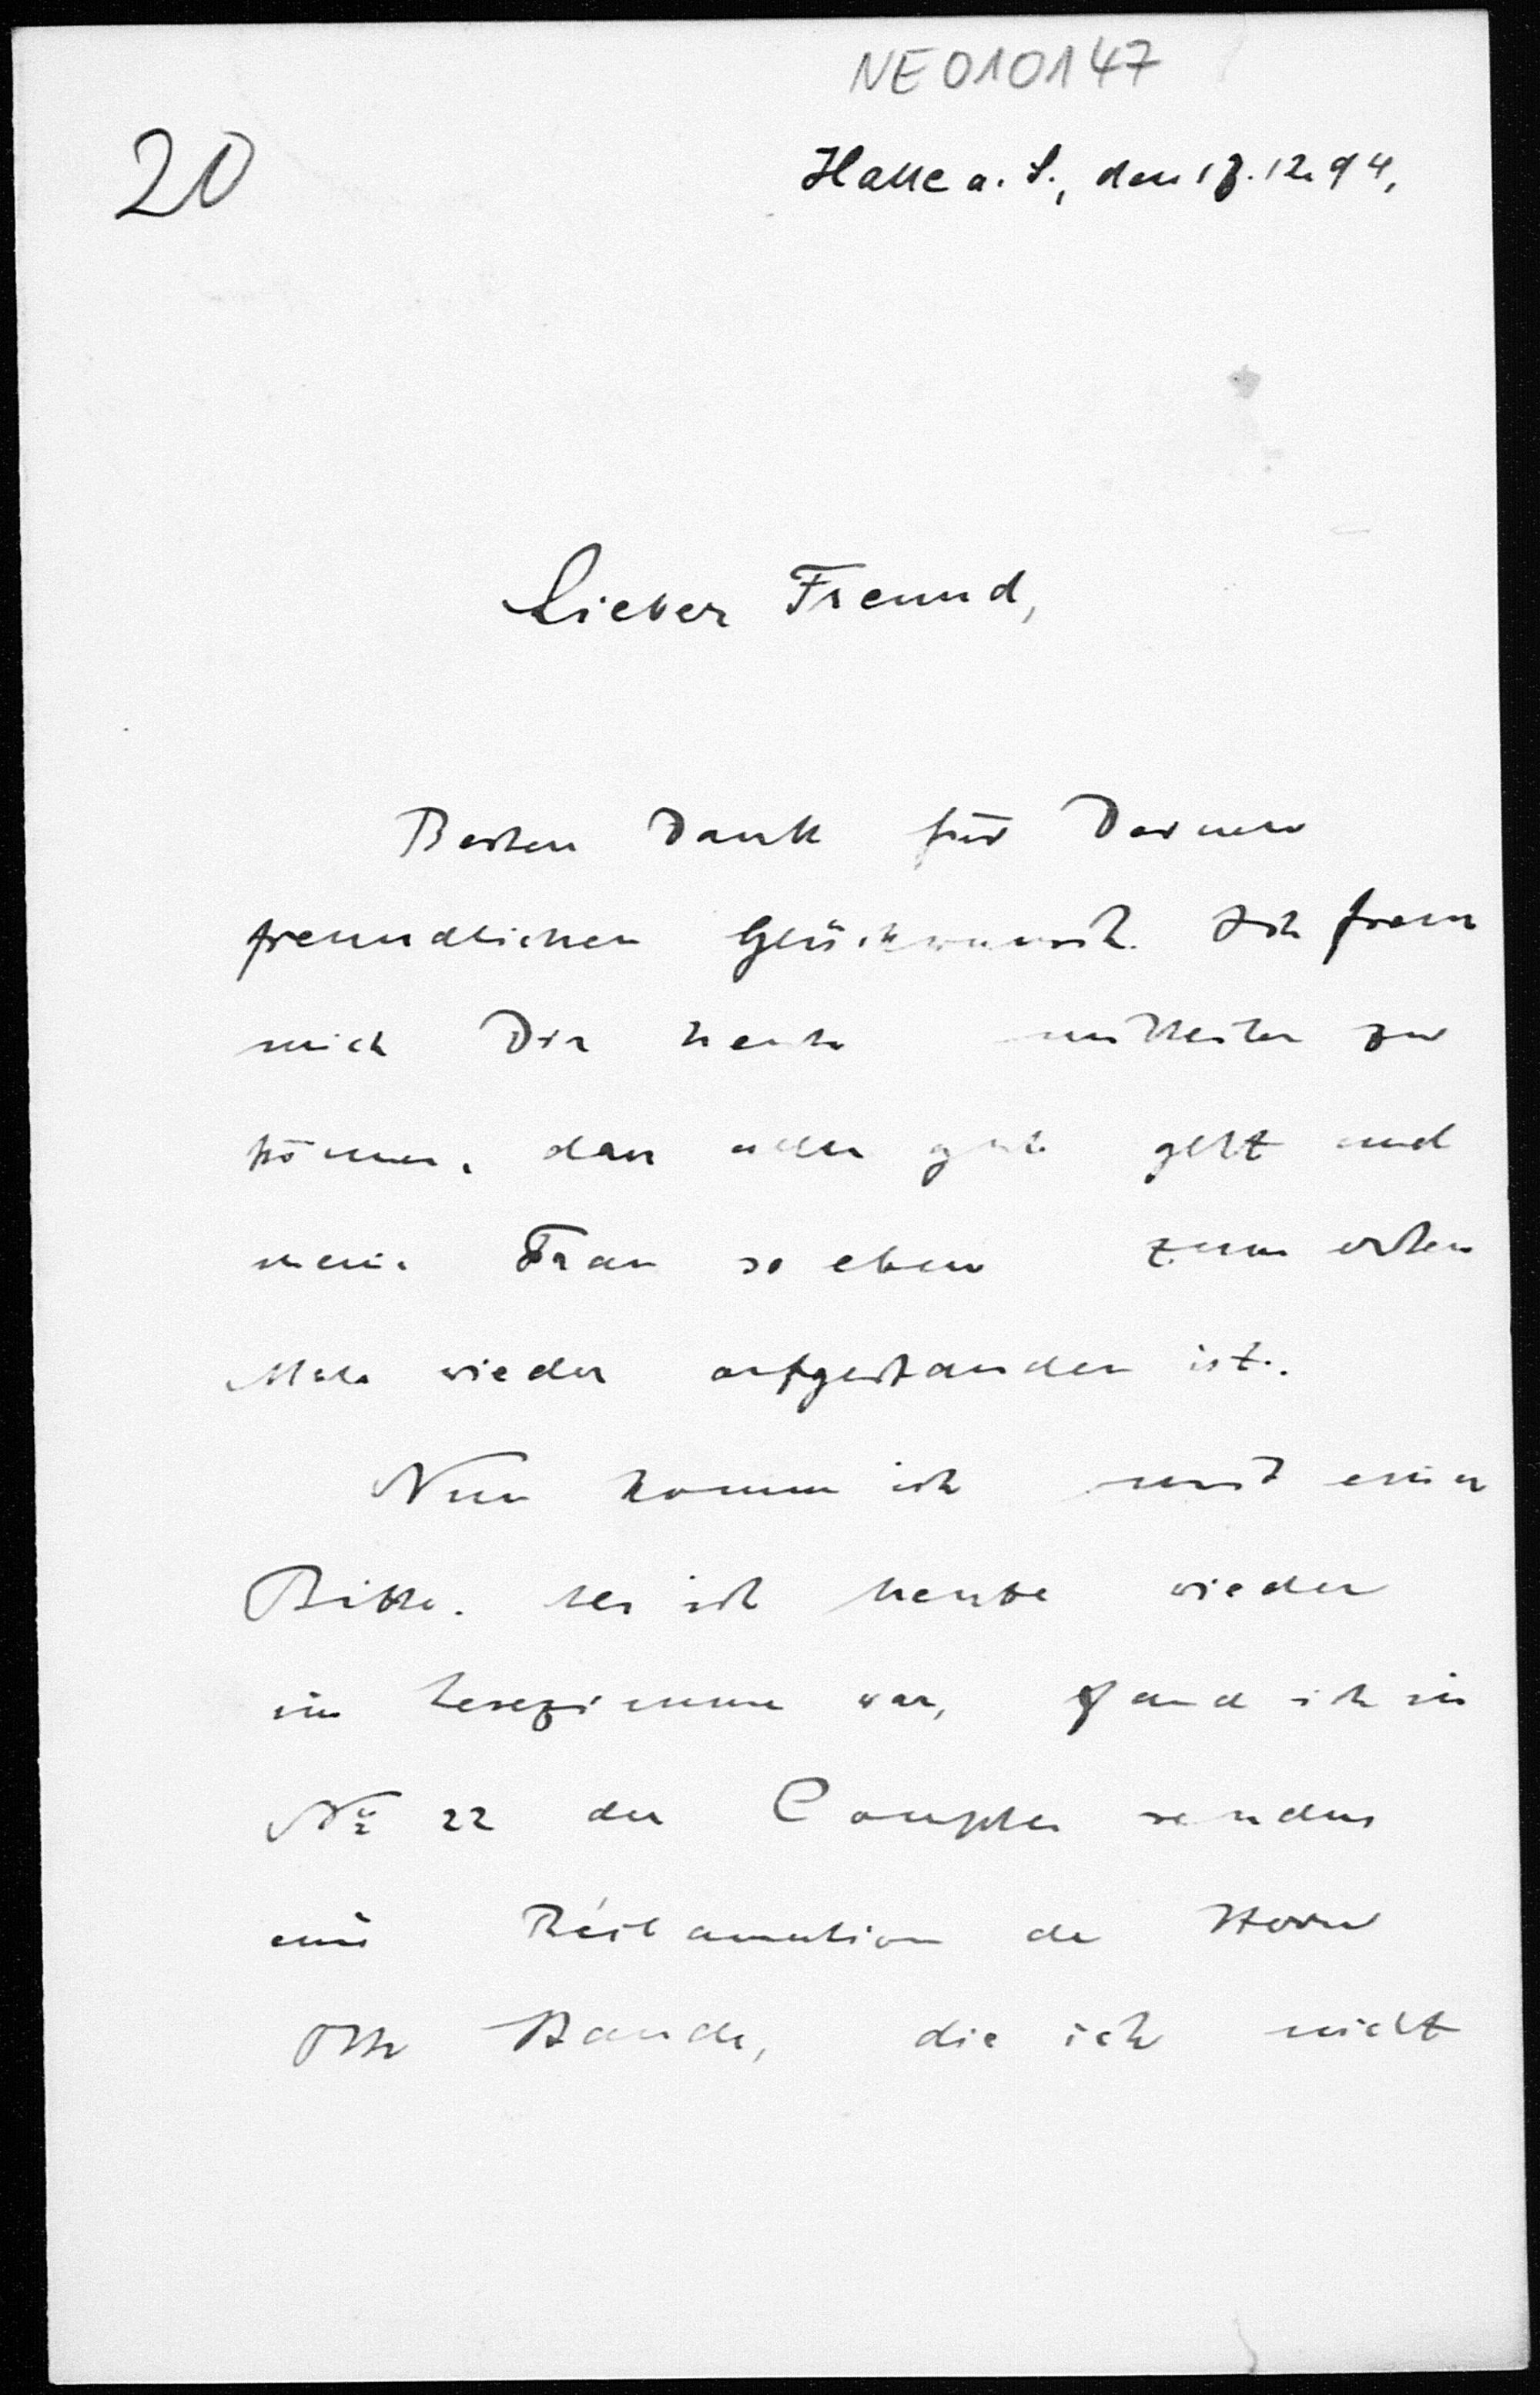 NE010147
20
Halle a. S., den 17.12.94,
Lieber Freund,
Besten Dank für Deinen
freundlichen Glückwunsch. Ich freue
mich Dir heute mittheilen zu
können, dass alles gut geht und
meine Frau so eben zum ersten
Male wieder aufgestanden ist.
Nun komme ich mit einer
Bitte. Als ich heute wieder
im Lesezimmer war, fand ich in
No 22 der Comptes rendus
eine Réclamation de Herrn
die ich nicht